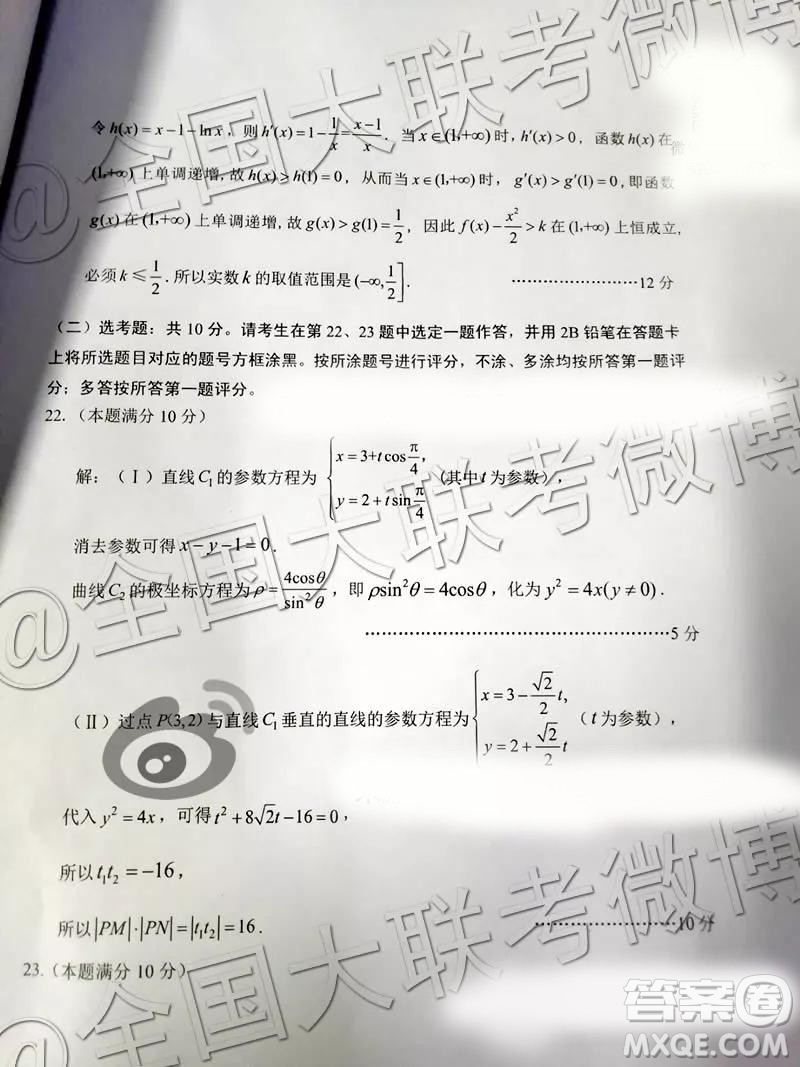 令h(x)=x-1-lnx, 则h′(x)=1-1/x=(x-1)/x. 当x∈(1,+∞)时, h′(x)>0, 函数h(x)在
(1,+∞)上单调递增,故h(x)>h(1)=0, 从而当x∈(1,+∞)时, g′(x)>g′(1)=0,即函数
g(x)在(1,+∞)上单调递增,故g(x)>g(1)=1/2, 因此f(x)-x²/2>k在(1,+∞)上恒成立,
必须k≤1/2.所以实数k的取值范围是(-∞,1/2]. ………………12分
(二)选考题:共10分。请考生在第22、23题中选定一题作答,并用2B铅笔在答题卡
上将所选题目对应的题号方框涂黑。按所涂题号进行评分,不涂、多涂均按所答第一题评
分;多答按所答第一题评分。
22.(本题满分10分)
解:(Ⅰ)直线C₁的参数方程为{x=3+tcosπ/4, y=2+tsinπ/4 (其中t为参数),
消去参数可得x-y-1=0.
曲线C₂的极坐标方程为ρ=4cosθ/sin²θ, 即ρsin²θ=4cosθ, 化为y²=4x(y≠0).
………………………………………………5分
(Ⅱ)过点P(3,2)与直线C₁垂直的直线的参数方程为{x=3-(√2/2)t, y=2+(√2/2)t (t为参数),
代入y²=4x, 可得t²+8√2t-16=0,
所以t₁t₂=-16,
所以|PM|·|PN|=|t₁t₂|=16. ……………………10分
23.(本题满分10分)
@全国大联考微博
@全国大联考微博
@全国大联考微博
答案卷
MXQE.COM